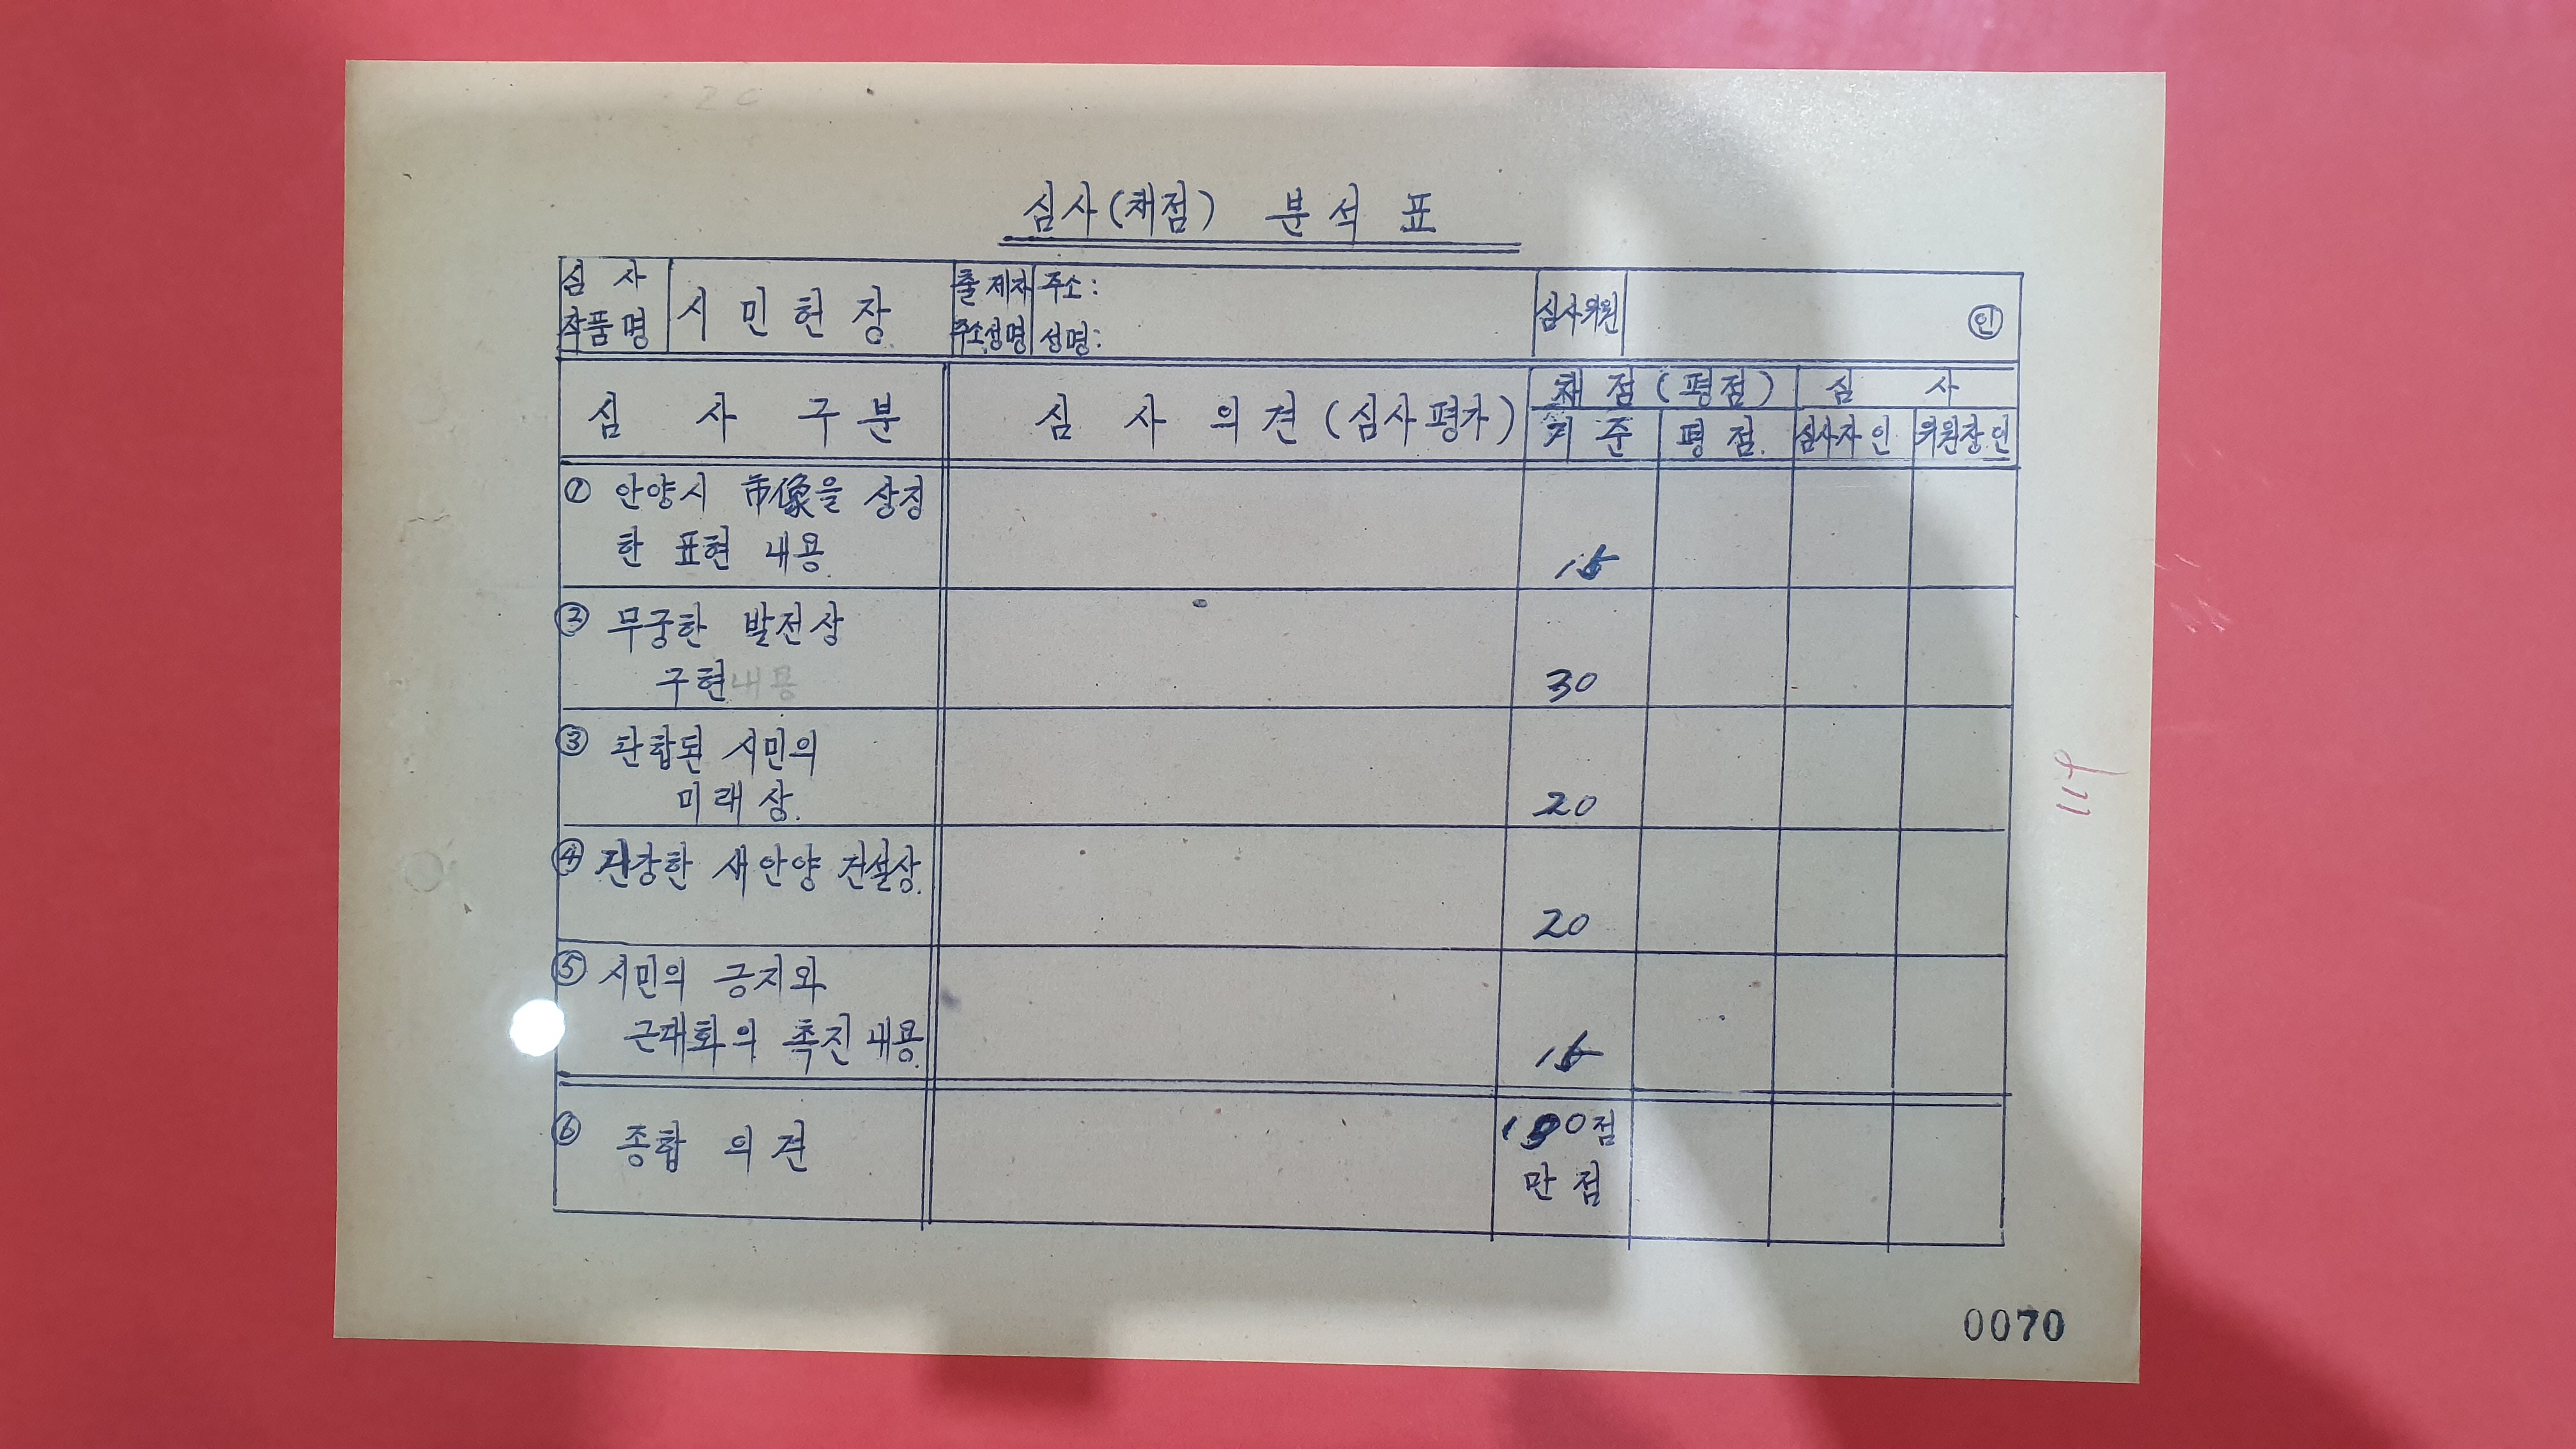 심사(채점) 분석표
심사
작품명
시민헌장
출제자
주소성명
주소:
성명:
심사위원
인
심사구분
심사의견(심사평가)
채점(평점)
심사
기준
평점.
심사자인
위원장인
① 안양시 市像을 상징
한 표현 내용.
15
② 무궁한 발전상
구현내용
30
③ 화합된 시민의
미래상.
20
④ 건강한 새안양 건설상.
20
⑤ 시민의 긍지와
근대화의 촉진내용.
15
⑥ 종합 의견
100점
만점
0070